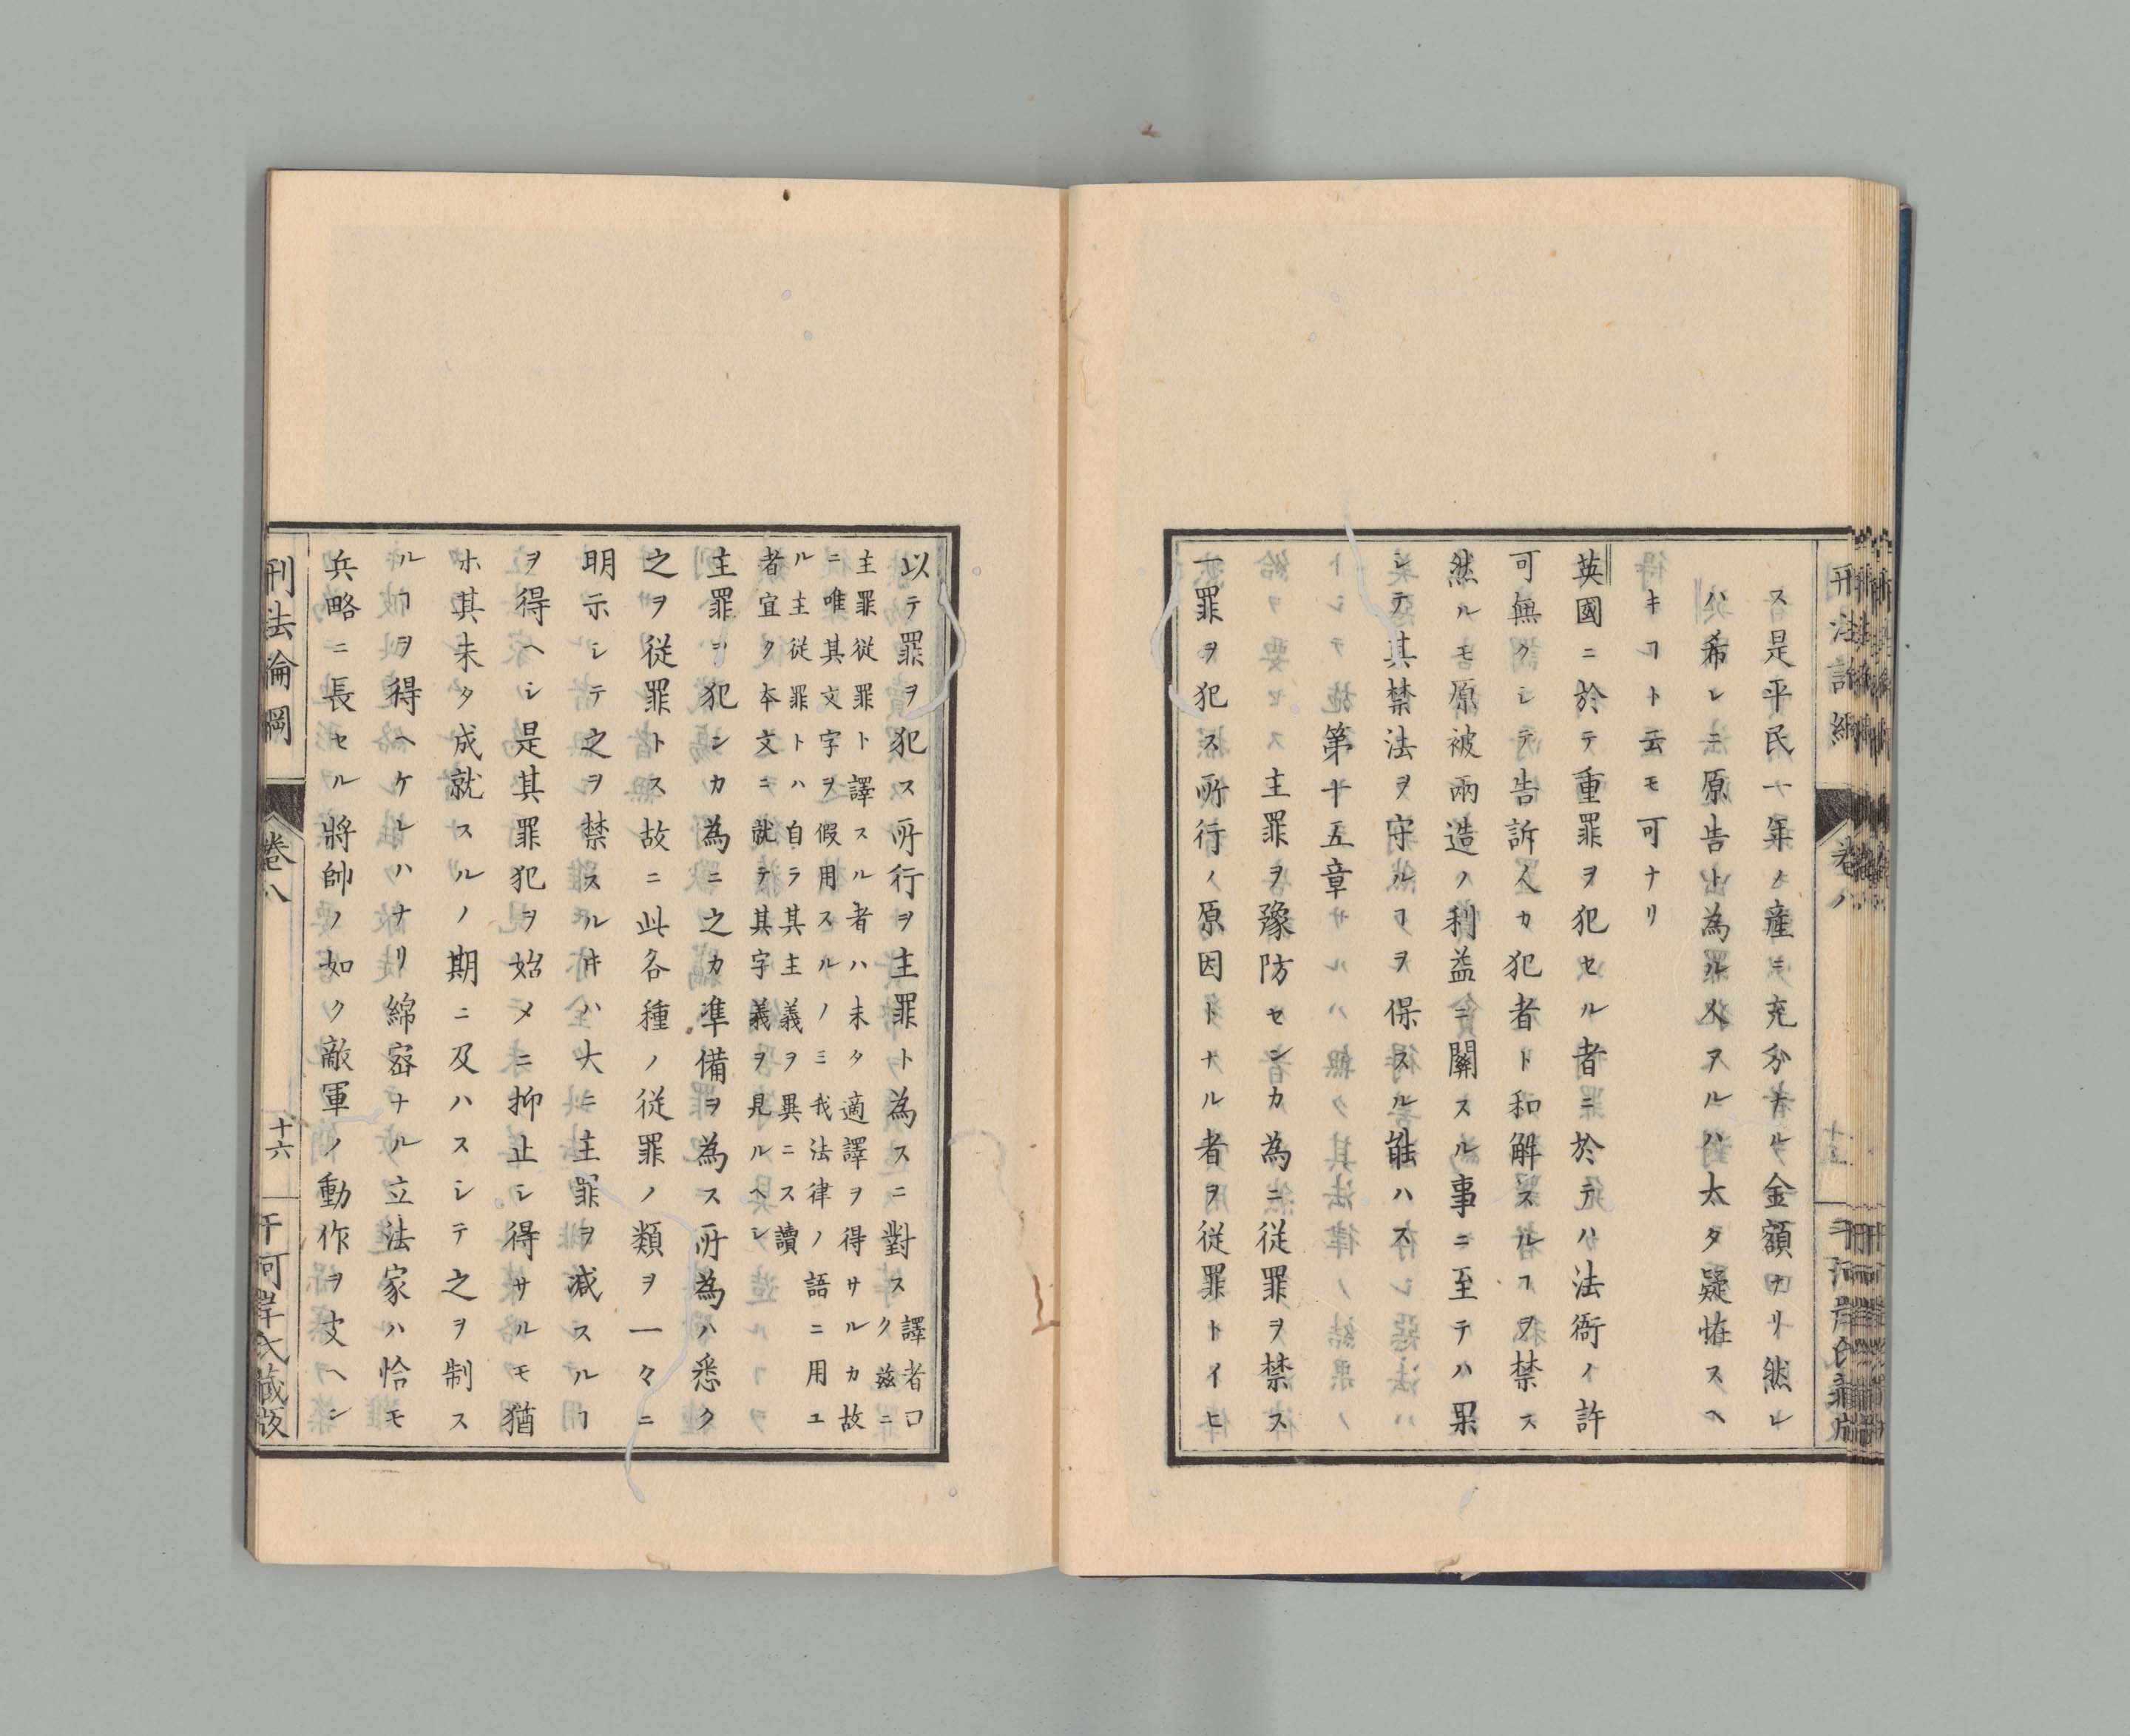 ス是平民一年ノ産ニ充分ナル金額ナリ然レ
ハ希レニ原告ト為ル人アルハ太タ疑恠スヘ
キヿト云モ可ナリ
英國ニ於テ重罪ヲ犯セル者ニ於テハ法衙ノ許
可無クシテ告訴人カ犯者ト和解スルヿヲ禁ス
然ルモ原被兩造ノ利益ニ關スル事ニ至テハ果
シテ其禁法ヲ守ルヿヲ保スル能ハス
第十五章
主罪ヲ豫防センカ為ニ従罪ヲ禁ス
一罪ヲ犯ス所行ノ原因トナル者ヲ従罪トイヒ
以テ罪ヲ犯ス所行ヲ主罪ト為スニ對ス
譯者口
ク茲ニ
主罪従罪ト譯スル者ハ未タ適譯ヲ得サルカ故
ニ唯其文字ヲ假用スルノミ我法律ノ語ニ用ユ
ル主従罪トハ自ラ其主義ヲ異ニス讀
者宜ク本文ニ就テ其字義ヲ見ルヘシ
主罪ヲ犯ンカ為ニ之カ準備ヲ為ス所為ハ悉ク
之ヲ従罪トス故ニ此各種ノ従罪ノ類ヲ一々ニ
明示シテ之ヲ禁スル𪜈ハ大ニ主罪ヲ減スルヿ
ヲ得ヘシ是其罪犯ヲ始メニ抑止シ得サルモ猶
ホ其未タ成就スルノ期ニ及ハスシテ之ヲ制ス
ルヿヲ得ヘケレハナリ綿密ナル立法家ハ恰モ
兵略ニ長セル將帥ノ如ク敵軍ノ動作ヲ支ヘン
刑法論綱
卷八
十六
干河岸氏蔵版